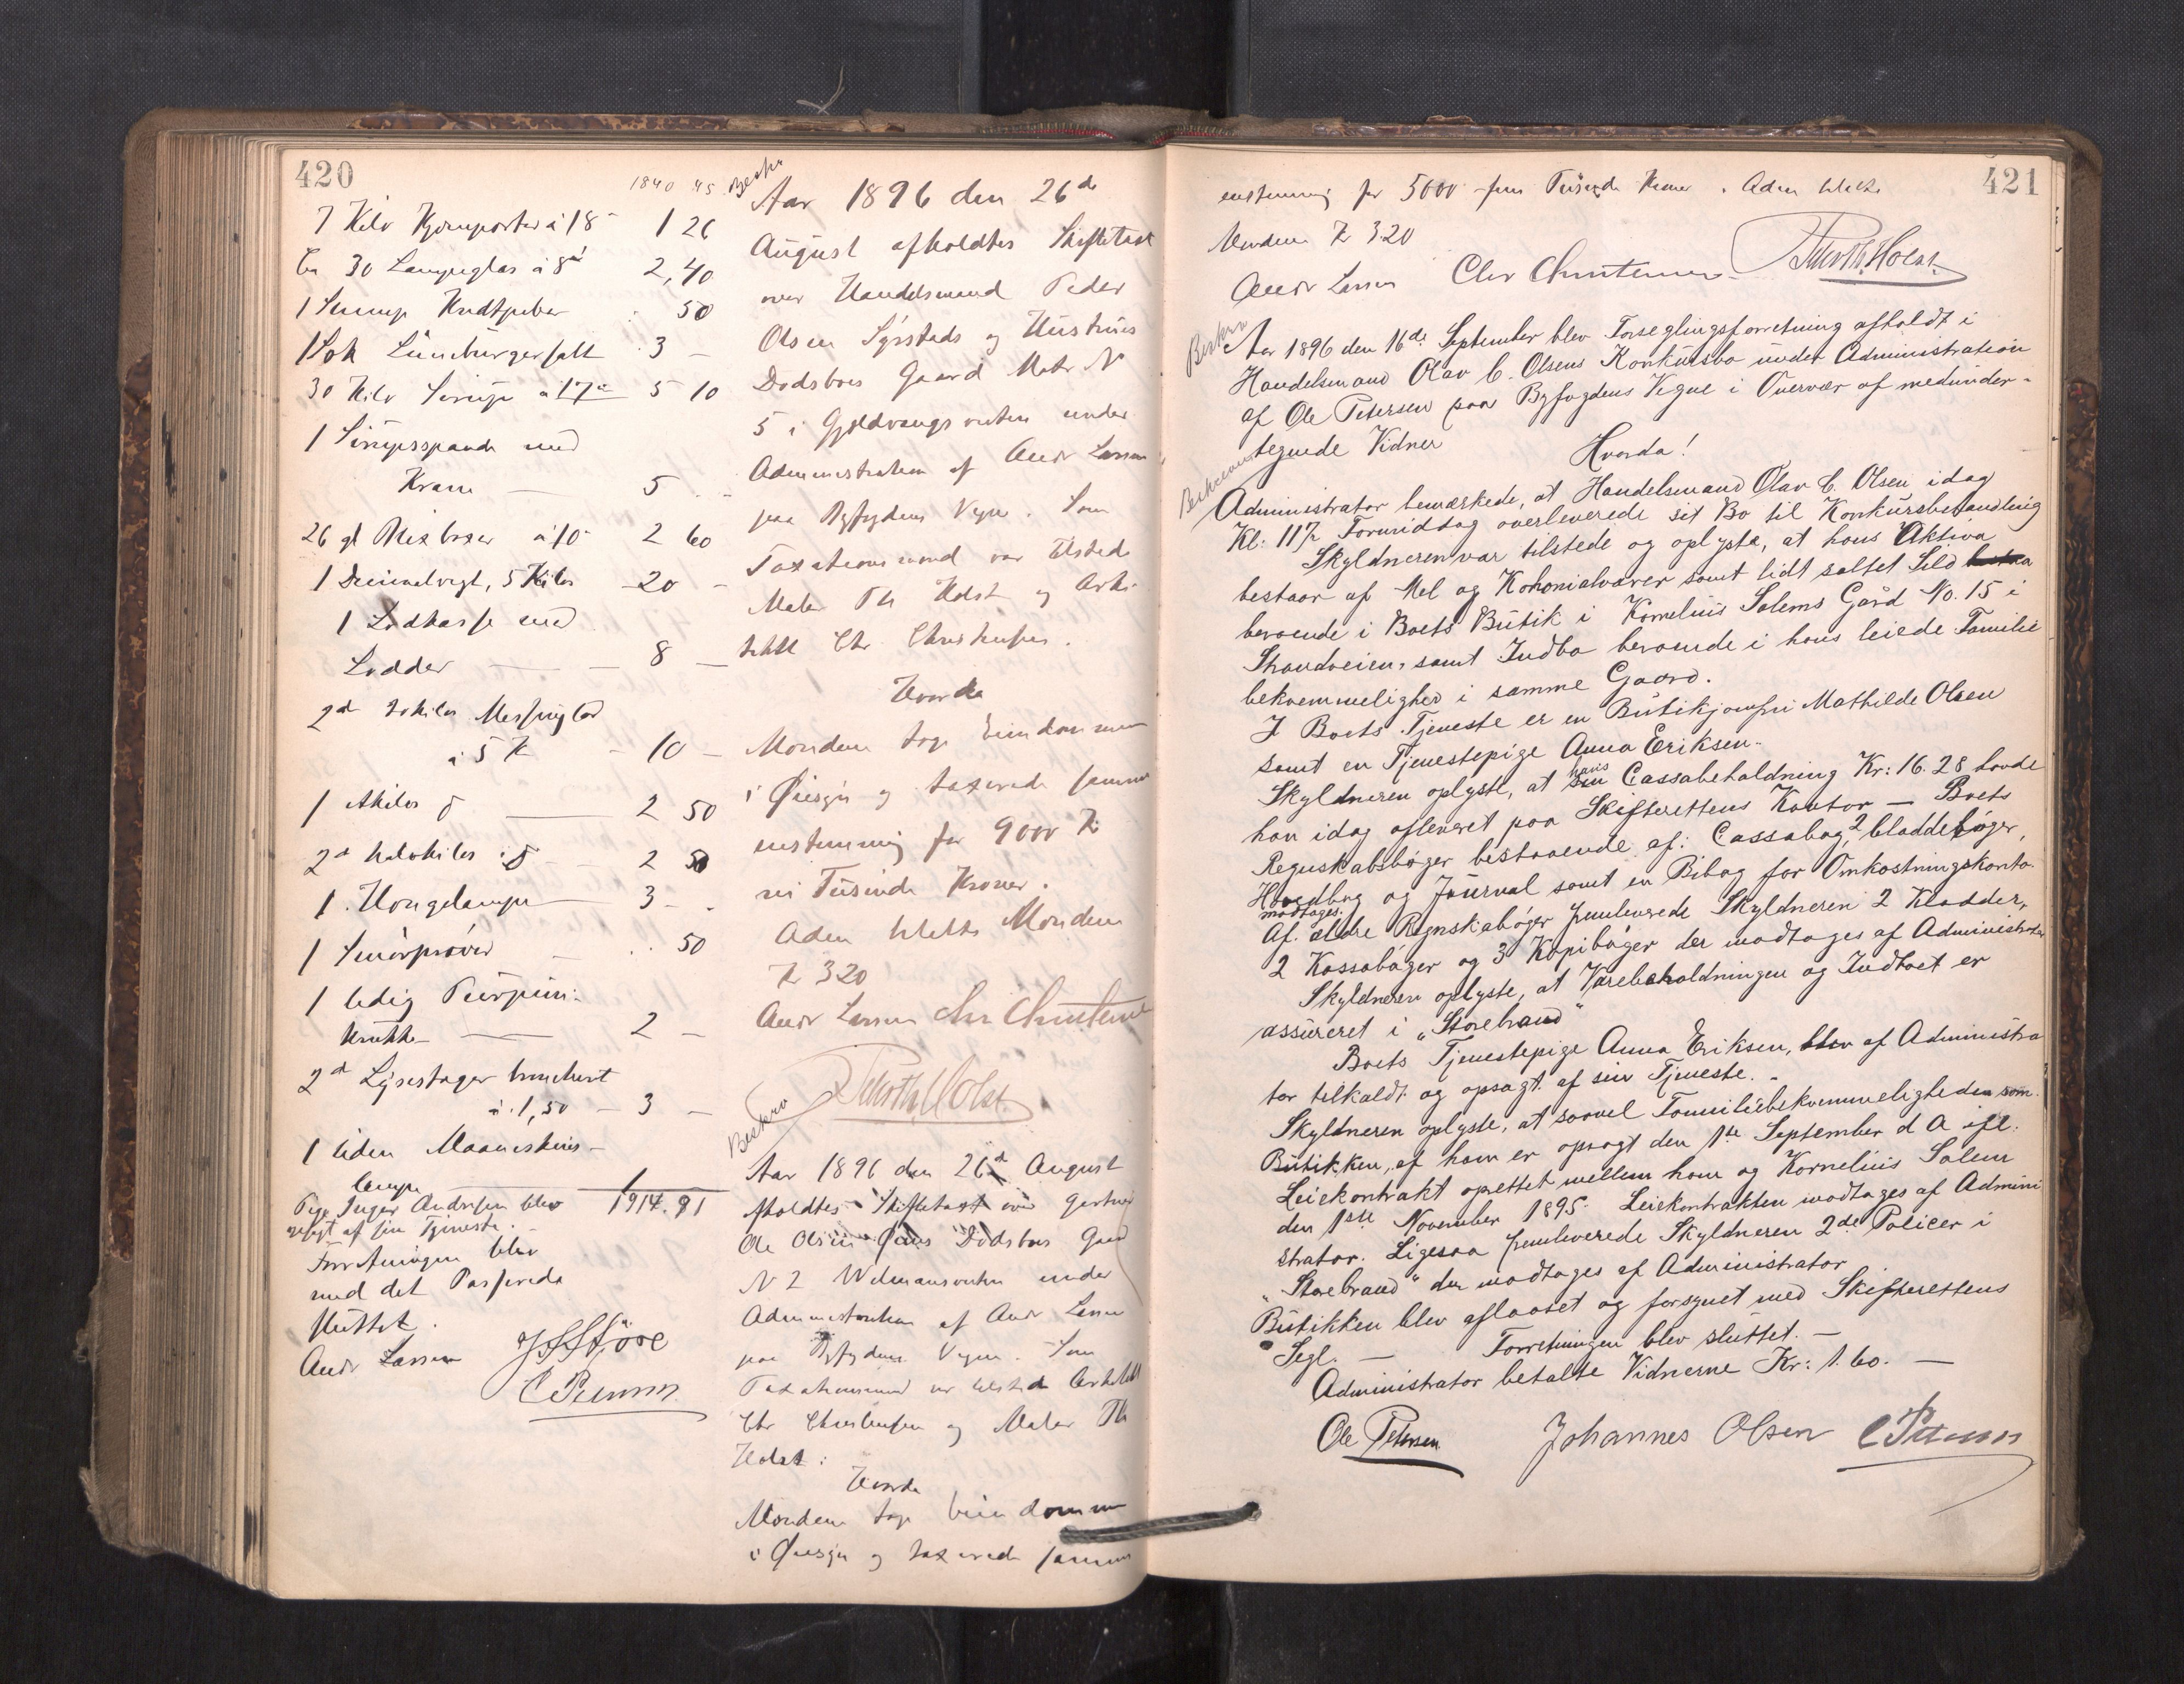 420
1840 45
7 Kilo Kjørnporter à 18 1 26
Ca 30 Lampeglas à 8 2,40
1 Krudtpeber 50
1 Sæk Lüneburgersalt 3 –
30 Kilo Sirup a 17 5 10
1 Sirupsspande med
Kran – 5 –
26 gl à 10 2 60
1 Decimalvægt, 5 Kilos 20 –
1 Lodkasse med
Lodder – 8 –
2 Messinglod
à 5 Kr – 10 –
1 2 50
2 halvkilos 2 50
1 Hængelampe 3 –
1 Smørprøver – 50
1 ledig
Krukke – 2 –
2d Lysestager
à 1,50 – 3 –
1 liden Maaneskins-
lampe 1
Pige Inger Andresen blev 1914.91
opsagt af sin Tjeneste.
Forretningen blev
med det Passerede
sluttet.
Andr Larssen
Beskr
Aar 1896 den 26de
August afholdtes Skiftetaxt
over Handelsmand Peder
Olsen og Hustrues
Dødsboes Gaard Matr N
5 i under
Administration af Andr Larssen
paa Byfogdens Vegne. Som
Taxationsmænd var tilstede
Maler Th Holst og Arki-
tekt Chr Christensen.
Hvorda
Mændene tog Eiendommen
i Øiesyn og taxerede samme
enstemmig for 9000 Kr
ni Tusinde Kroner.
Adm betalte Mændene
Kr 3 20
Andr Larssen Chr Christensen
Th. Holst
Beskr
Aar 1896 den 26de August
afholdtes Skiftetaxt over Gartner
Ole Olsen Dødsbos Gaard
N 2 under
Administration af Andr Larssen
paa Byfogdens Vegne. Som
Taxationsmænd var tilstede Arkitekt
Chr Christensen og Maler Th
Holst:
Hvorda
Mændene tog Eiendommen
i Øiesyn og taxerede samme
421
enstemmig for 5000 fem Tusinde Kroner. Adm betalte
Mændene Kr 3.20
Andr Larssen Chr Christensen Th. Holst
Beskr
Aar 1896 den 16de September blev Forseglingsforretning afholdt i
Handelsmand Olav C. Olsens Konkursbo under Administration
af Ole Petersen paa Byfogdens Vegne i Overvær af medunder-
tegnede Vidner
Hvorda!
Beskreven
Administrator bemærkede, at Handelsmand Olav C. Olsen idag
Kl: 11½ Formiddag overleverede sit Bo til Konkursbehandling
Skyldneren var tilstede og oplyste, at hans Aktiva
bestaar af Mel og Kolonialvarer samt lidt saltet Sild
beroende i Boets Butik i Kornelius Salems Gård No. 15 i
Strandveien, samt Indbo beroende i hans leiede Familie
bekvemmelighed i samme Gaard.
I Boets Tjeneste er en Butikjomfru Mathilde Olsen
samt en Tjenestepige Anna Eriksen.
Skyldneren oplyste, at hans Cassabeholdning Kr: 16.28 havde
han idag afleveret paa Skifterettens Kontor – Boets
Regnskabsbøger bestaaende af: Cassabog, 2 kladdebøger,
Hovedbog og Journal samt en Bibog for Omkostningskonto
modtages.
Af ældre Regnskabøger fremleverede Skyldneren 2 Kladder,
2 Kassabøger og 3 Kopibøger der modtages af Administrator
Skyldneren oplyste, at Varebeholdningen og Indboet er
assureret i „Storebrand"
Boets Tjenestepige Anna Eriksen, blev af Administra
tor tilkaldt og opsagt af sin Tjeneste. –
Skyldneren oplyste, at saavel Familiebekvemmeligheden som
Butikken, af ham er opsagt den 1ste September d A ifl.
Leiekontrakt oprettet mellem ham og Kornelius Salem
den 1ste November 1895. Leiekontrakten modtages af Admini
strator. Ligesaa fremleverede Skyldneren 2de Policer i
„Storebrand" der modtages af Administrator
Butikken blev aflaaset og forsynet med Skifterettens
Segl. – Forretningen blev sluttet. –
Administrator betalte Vidnerne Kr: 1.60. –
Ole Petersen Johannes Olsen